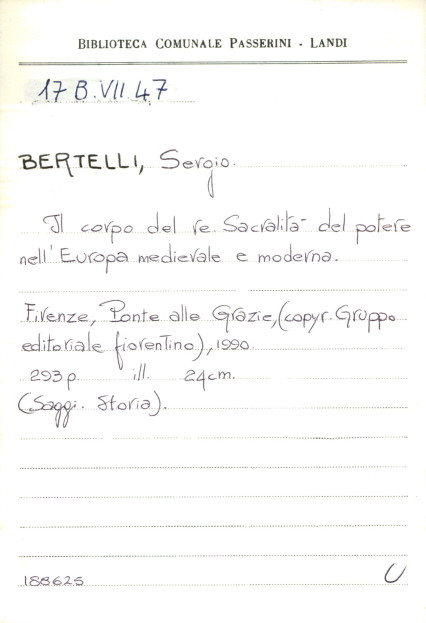 BIBLIOTECA COMUNALE PASSERINI - LANDI
17 B.VII.47
BERTELLI, Sergio.
Il corpo del re. Sacralità del potere
nell'Europa medievale e moderna.
Firenze, Ponte alle Grazie, (copyr. Gruppo
editoriale fiorentino), 1990.
293 p. ill. 24 cm.
(Saggi. Storia).
188625 U